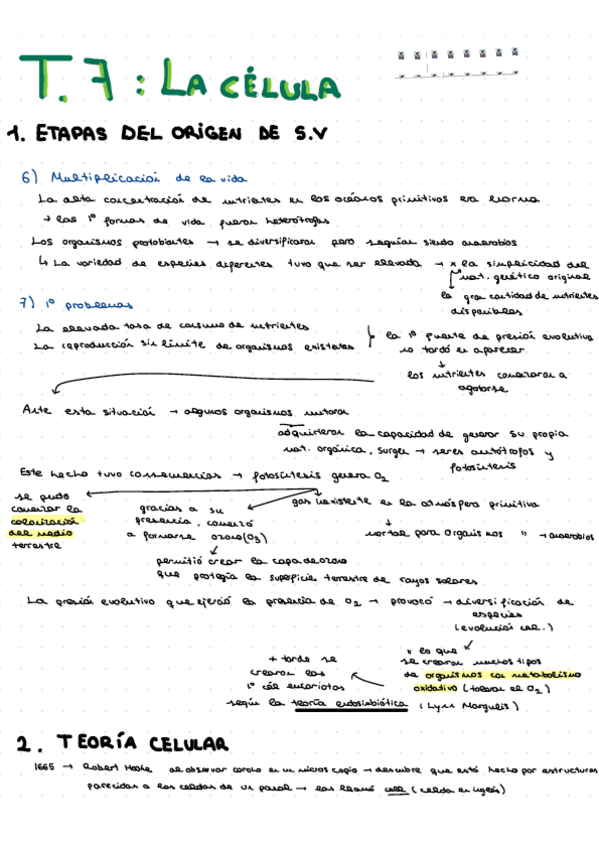 T. 7 : LA CÉLULA
1. ETAPAS DEL ORIGEN DE S.V
6) Multiplicación de la vida
La alta concentración de nutrientes en los océanos primitivos era enorme
→ las 1º formas de vida fueron heterótrofas
Los organismos protobiontes → se diversificaron pero seguían siendo anaerobios
↳ La variedad de especies diferentes tuvo que ser elevada → x la simplicidad del
mat. genético original
la gran cantidad de nutrientes
disponibles
7) 1º problemas
La elevada tasa de consumo de nutrientes
La reproducción sin límite de organismos existentes
la 1º fuente de presión evolutiva
no tardó en aparecer
↓
los nutrientes comenzaron a
agotarse
Ante esta situación → algunos organismos mutaron
adquirieron la capacidad de generar su propia
mat. orgánica, surgen → seres autótrofos y
fotosíntesis
Este hecho tuvo consecuencias → fotosíntesis genera O2
se pudo
comenzar la
colonización
del medio
terrestre
gracias a su
presencia, comenzó
a formarse ozono (O3)
permitió crear la capa de ozono
que protegía la superficie terrestre de rayos solares
gas inexistente en la atmósfera primitiva
↓
mortal para organismos → anaerobios
La presión evolutiva que ejerció la presencia de O2 → provocó → diversificación de
especies
(evolución cel.)
x lo que
se crearon muchos tipos
de organismos con metabolismo
oxidativo (toleran el O2)
+ tarde se
crearon las
1º cél eucariotas
según la teoría endosimbiótica (Lynn Margulis)
2. TEORÍA CELULAR
1665 → Robert Hooke al observar corcho en un microscopio → descubre que está hecho por estructuras
parecidas a las celdas de un panal → las llamó cell (celda en inglés)